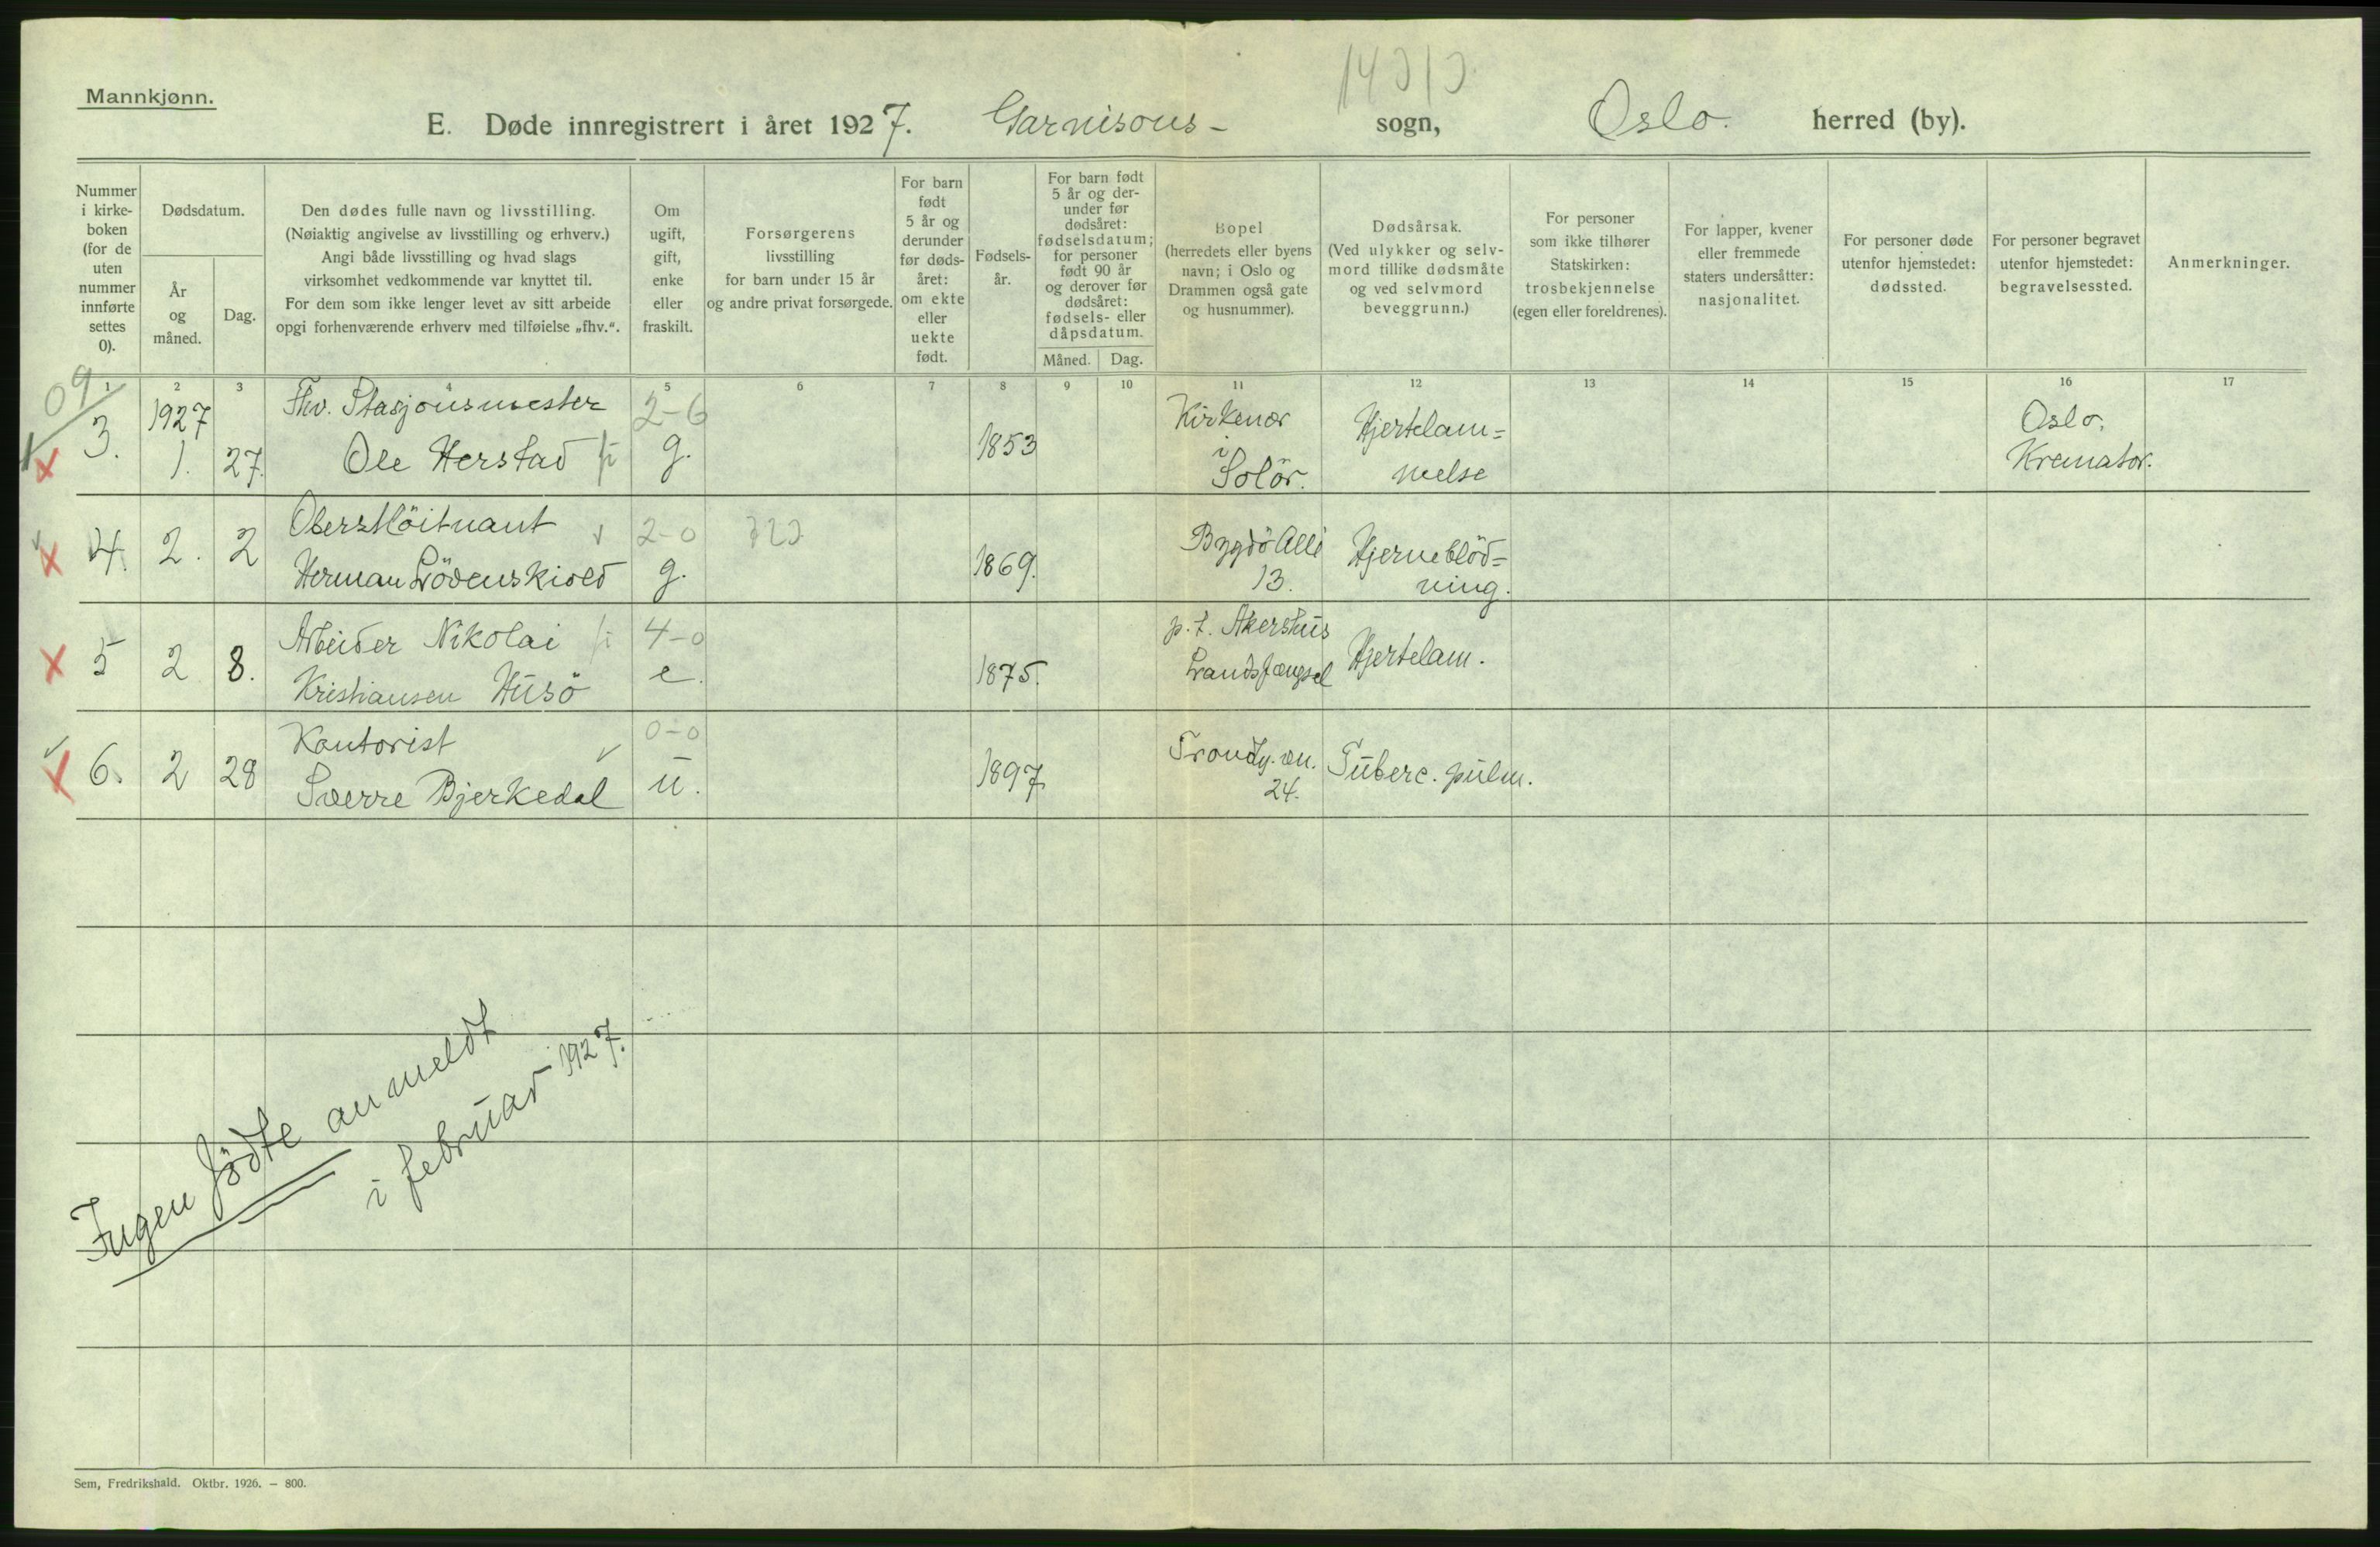 Mannkjønn.
E. Døde innregistrert i året 1927. Garnisons- sogn, Oslo. herred (by).
Nummer
i kirke-
boken
(for de
uten
nummer
innførte
settes
0).
Dødsdatum.
År
og
måned.
Dag.
Den dødes fulle navn og livsstilling.
(Nøiaktig angivelse av livsstilling og erhverv.)
Angi både livsstilling og hvad slags
virksomhet vedkommende var knyttet til.
For dem som ikke lenger levet av sitt arbeide
opgi forhenværende erhverv med tilføielse „fhv.“.
Om
ugift,
gift,
enke
eller
fraskilt.
Forsørgerens
livsstilling
for barn under 15 år
og andre privat forsørgede.
For barn
født
5 år og
derunder
før døds-
året:
om ekte
eller
uekte
født.
Fødsels-
år.
For barn født
5 år og der-
under før
dødsåret:
fødselsdatum;
for personer
født 90 år
og derover før
dødsåret:
fødsels- eller
dåpsdatum.
Måned. Dag.
Bopel
(herredets eller byens
navn; i Oslo og
Drammen også gate
og husnummer).
Dødsårsak.
(Ved ulykker og selv-
mord tillike dødsmåte
og ved selvmord
beveggrunn.)
For personer
som ikke tilhører
Statskirken:
trosbekjennelse
(egen eller foreldrenes).
For lapper, kvener
eller fremmede
staters undersåtter:
nasjonalitet.
For personer døde
utenfor hjemstedet:
dødssted.
For personer begravet
utenfor hjemstedet:
begravelsessted.
Anmerkninger.
1 2 3 4 5 6 7 8 9 10 11 12 13 14 15 16 17
09
1927 Fhv. Stasjonsmester 2-6 Kirkenær Hjertelam= Oslo.
3. 1. 27. Ole Herstad g. 1853 i Solör. melse Kremator.
Oberstlöitnant 2-0 Bygdö Allé Hjerneblöd=
4. 2. 2 Herman Lövenskiold g. 1869. 13. ning.
Arbeider Nikolai 4-0 p.t. Akershus
5 2 8. Kristiansen Husö e. 1875. Landsfængsel Hjertelam.
Kontorist 0-0
6. 2 28 Sverre Bjerkedal u. 1897 Trondhj.vn. 24. Tuberc. pulm.
Ingen födte anmeldt
i februar 1927.
Sem, Fredrikshald. Oktbr. 1926. — 800.